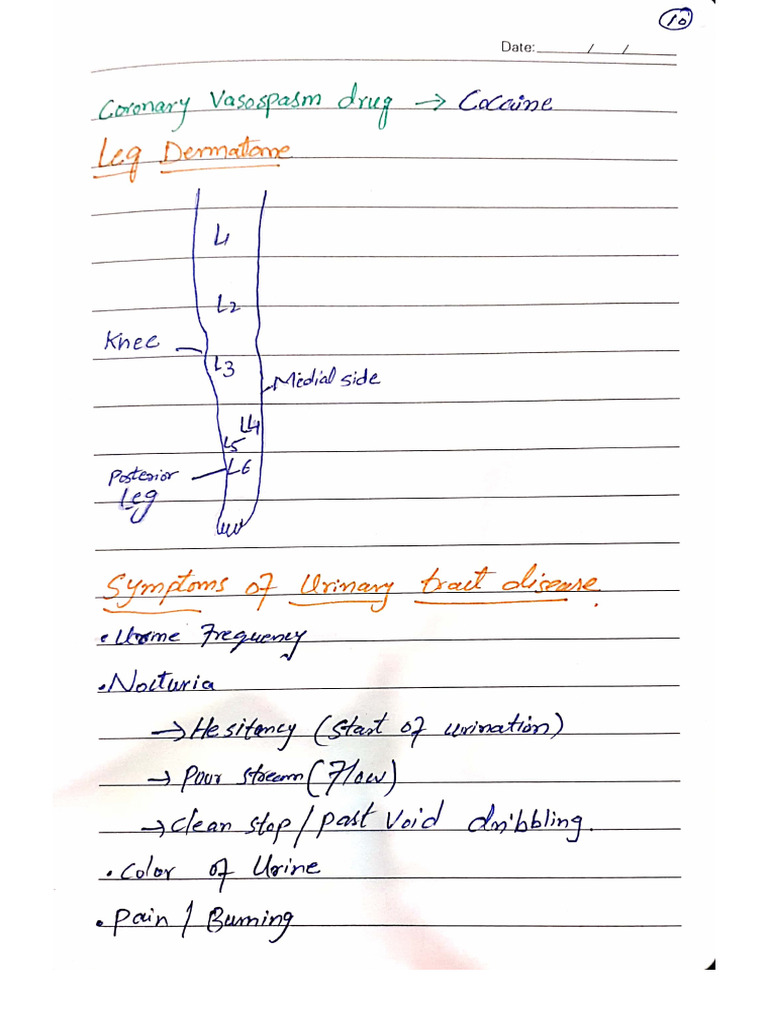 10
Date: / /
Coronary Vasospasm drug → Cocaine
Leg Dermatome
L1
L2
Knee
L3
Medial side
L4
L5
Posterior L6
Leg
Symptoms of Urinary tract disease.
• Urine Frequency
• Nocturia
→ Hesitency (Start of urination)
→ Pour stream (Flow)
→ Clean stop / Past Void dribbling.
• Color of Urine
• Pain / Burning